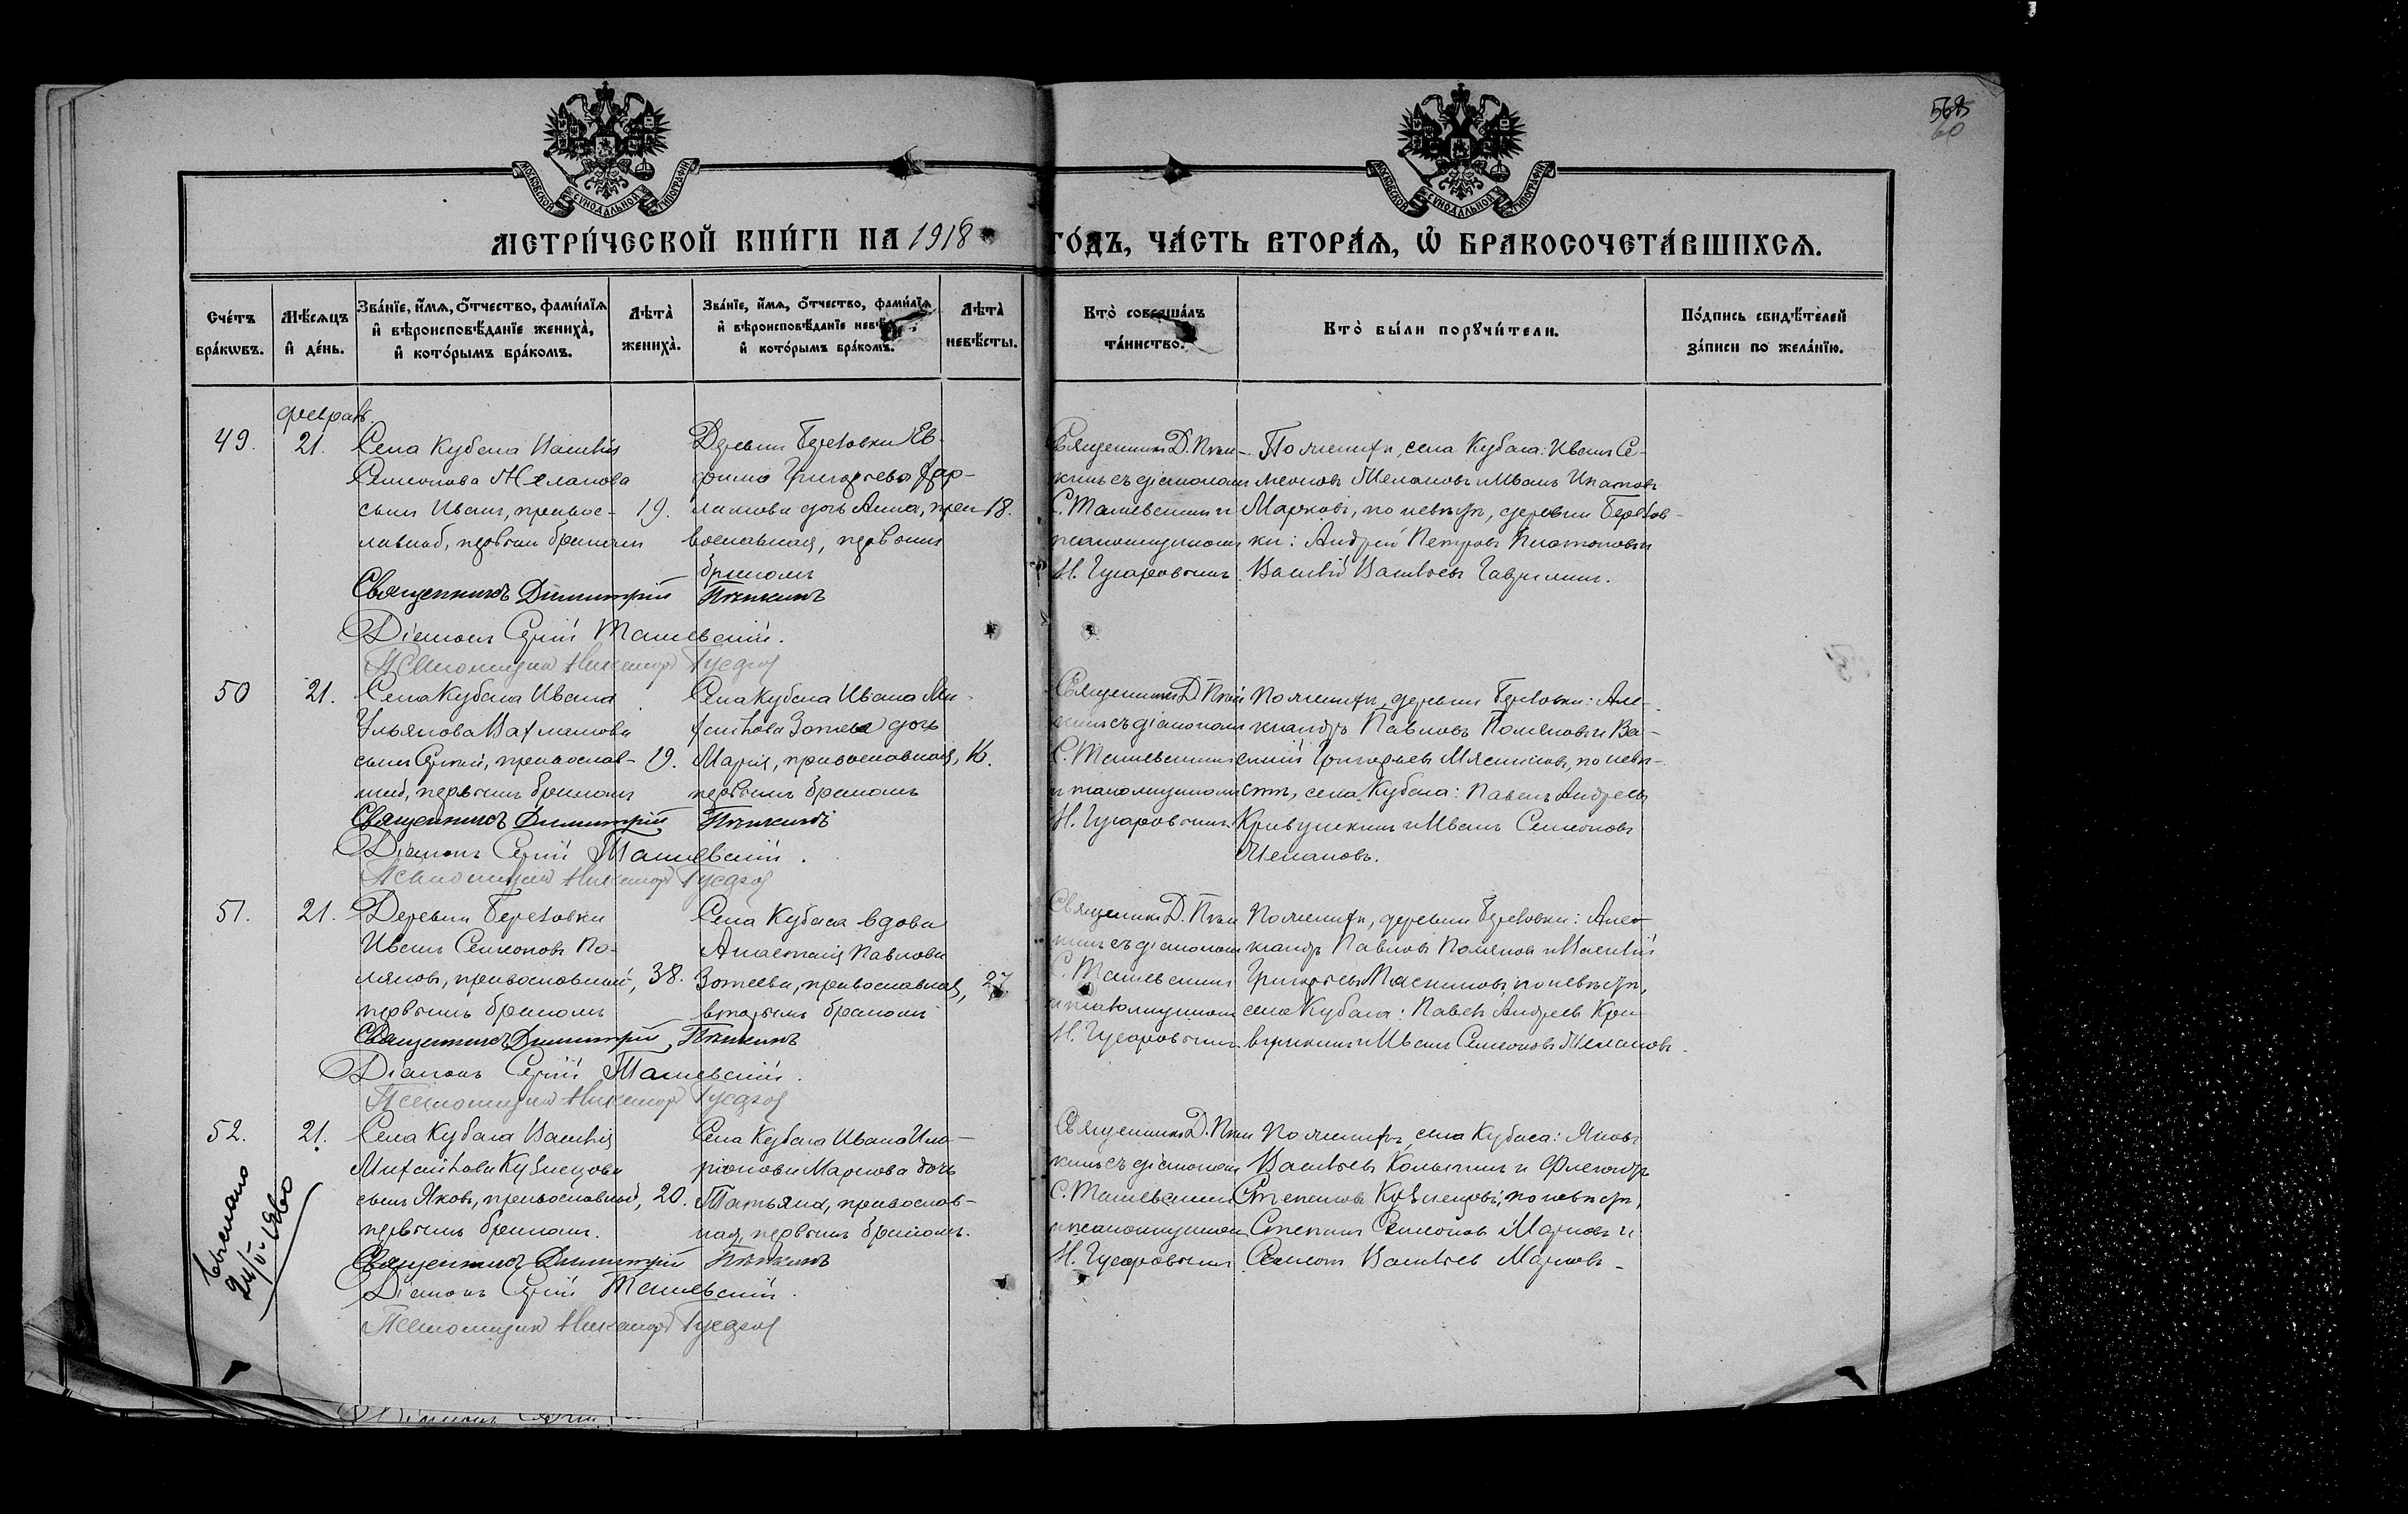 568
60
МОСКОВСКОЙ СѴНОДАЛЬНОЙ ТИПОГРАФІИ
МОСКОВСКОЙ СѴНОДАЛЬНОЙ ТИПОГРАФІИ
МЕТРИ́ЧЕСКОЙ КНИ́ГИ НА 1918 ГО́ДЪ, ЧА́СТЬ ВТОРА́Ѧ, Ѡ҆ БРАКОСОЧЕТА́ВШИХСѦ.
Сче́тъ бра́кѡвъ.
Мѣ́сѧцъ и҆ де́нь.
Зва́нїе, и҆́мѧ, ѻ҆́тчество, фами́лїѧ
и҆ вѣроисповѣ́данїе жениха̀,
и҆ кото́рымъ бра́комъ.
Лѣта̀ жениха̀.
Зва́нїе, и҆́мѧ, ѻ҆́тчество, фами́лїѧ
и҆ вѣроисповѣ́данїе невѣ́
и҆ кото́рымъ бра́комъ.
Лѣта̀ невѣ́сты.
Кто̀ соверша́лъ
та́инство.
Кто̀ бы́ли порꙋчи́тели.
По́дпись свидѣ́телей
за́писи по жела́нїю.
февраль
49.
21.
Села Кубаса Василія
Семенова Желанова
сынъ Иванъ, православ-
ный, первымъ бракомъ
19.
Деревни Березовки Ев-
фима Григорьева
дочь Анна, пра-
вославная, первымъ
бракомъ
18.
Священникъ Д. Пѣш-
кинъ съ діакономъ
С. Ташевскимъ и
псаломщикомъ
Н. Гусаровымъ
По женихѣ, села Кубаса: Иванъ Се-
меновъ Желановъ и Иванъ Игнатовъ
Марковъ, по невѣстѣ, деревни Березов-
ки: Андрей Петровъ Платоновъ и
Василій Васильевъ Гаврилинъ.
Священникъ Димитрій Пѣшкинъ
Діаконъ Сергій Ташевскій.
Псаломщикъ Никаноръ Гусаров
50
21.
Села Кубаса Ивана
Ульянова Вахламова
сынъ Сергѣй, православ-
ный, первымъ бракомъ
19.
Села Кубаса Ивана Ми-
хайлова Зотеева дочь
Марія, православная,
первымъ бракомъ
16.
Священникъ Д. Пѣш
кинъ съ діакономъ
С. Ташевскимъ
и псаломщикомъ
Н. Гусаровымъ.
По женихѣ, деревни Березовки: Алек-
сандръ Павловъ Поляковъ и Ва-
силій Григорьевъ Мясниковъ, по невѣ-
стѣ, села Кубаса: Павелъ Андреевъ
Кривушкинъ и Иванъ Семеновъ
Желановъ.
Священникъ Димитрій Пѣшкинъ
Діаконъ Сергій Ташевскій.
Псаломщикъ Никаноръ Гусаров
51.
21.
Деревни Березовки
Иванъ Семеновъ По-
ляковъ, православный,
первымъ бракомъ
38.
Села Кубаса вдова
Анастасія Павлова
Зотеева, православная,
вторымъ бракомъ
27
Священникъ Д. Пѣш
кинъ съ діакономъ
С. Ташевскимъ
и псаломщикомъ
Н. Гусаровымъ.
По женихѣ, деревни Березовки: Алек-
сандръ Павловъ Поляковъ и Василій
Григорьевъ Мясниковъ, по невѣстѣ,
села Кубаса: Павелъ Андреевъ Кри-
вушкинъ и Иванъ Семеновъ Желановъ.
Священникъ Димитрій Пѣшкинъ
Діаконъ Сергій Ташевскій.
Псаломщикъ Никаноръ Гусаров
52.
21.
Села Кубаса Василія
Михайлова Кузнецова
сынъ Яковъ, православный,
первымъ бракомъ.
20.
Села Кубаса Ивана Ила-
ріонова Маркова дочь
Татьяна, православ-
ная, первымъ бракомъ.
Священникъ Д. Пѣш
кинъ съ діакономъ
С. Ташевскимъ
и псаломщикомъ
Н. Гусаровымъ
По женихѣ, села Кубаса: Яковъ
Васильевъ и Александръ
Степановъ Кузнецовъ, по невѣстѣ,
Степанъ Семеновъ Марковъ и
Семенъ Васильевъ Марковъ.
Священникъ Димитрій Пѣшкинъ
Діаконъ Сергій Ташевскій.
Псаломщикъ Никаноръ Гусаров